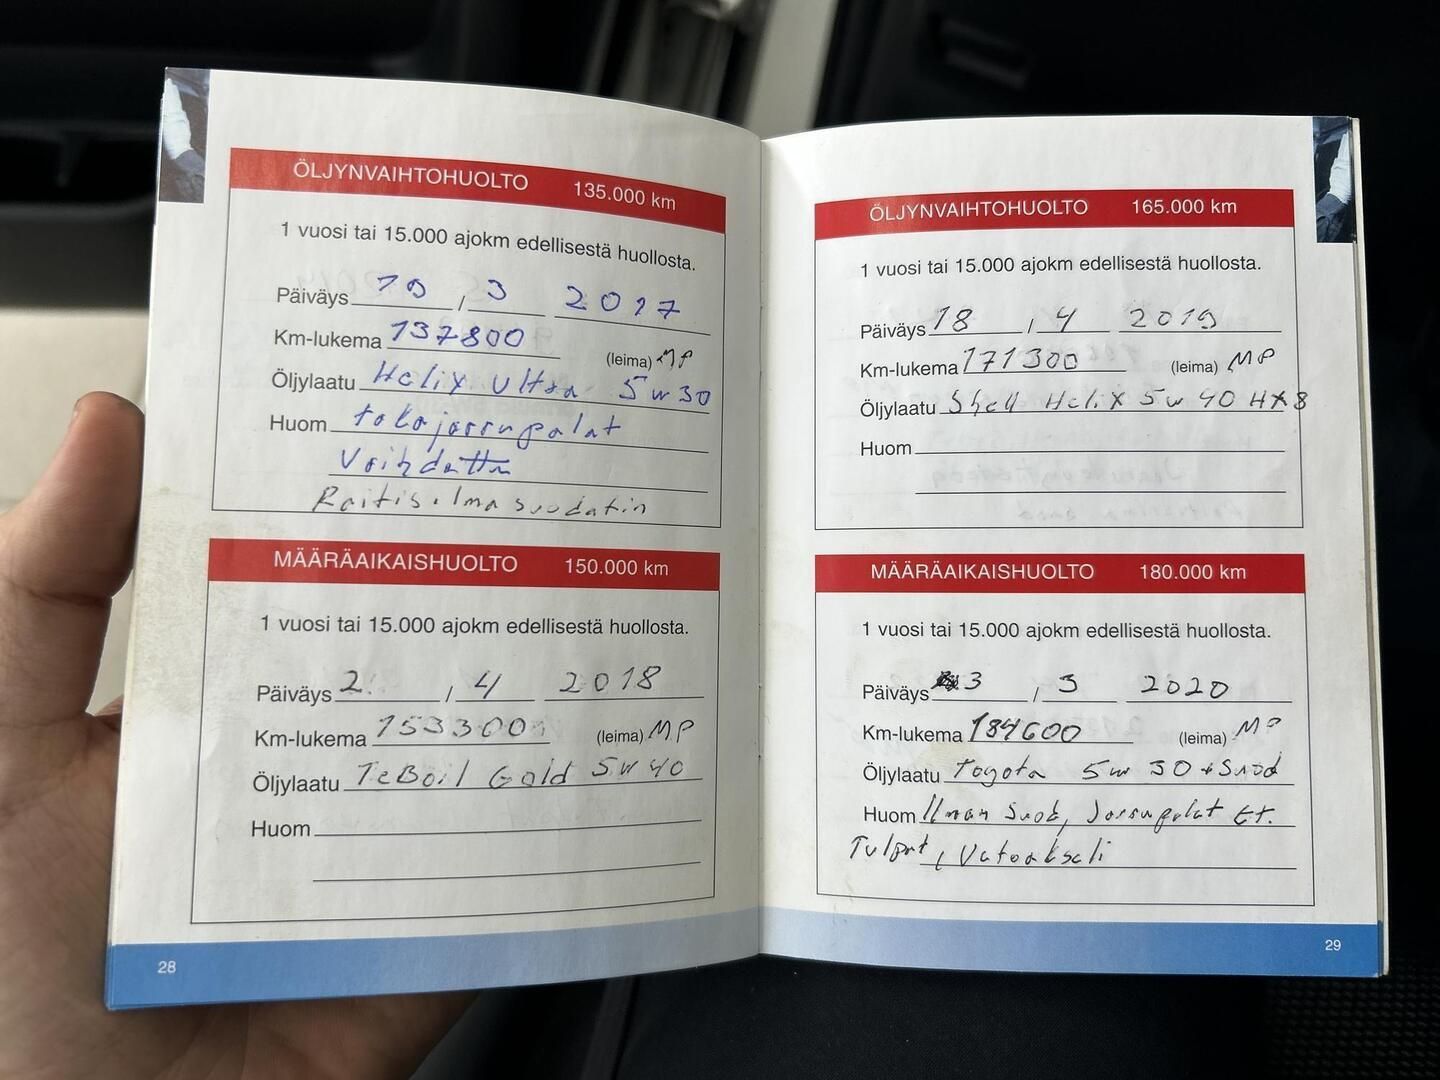 ÖLJYNVAIHTOHUOLTO 135.000 km
1 vuosi tai 15.000 ajokm edellisestä huollosta.
Päiväys 19 / 3 2017
Km-lukema 137800 (leima) MP
Öljylaatu Helix Ultra 5w30
Huom takajarrupalat
Vaihdettu
Raitis.ilmasuodatin
MÄÄRÄAIKAISHUOLTO 150.000 km
1 vuosi tai 15.000 ajokm edellisestä huollosta.
Päiväys 2. / 4 2018
Km-lukema 153300 (leima) MP
Öljylaatu TeBoil Gold 5w40
Huom
28
ÖLJYNVAIHTOHUOLTO 165.000 km
1 vuosi tai 15.000 ajokm edellisestä huollosta.
Päiväys 18 / 4 2019
Km-lukema 171300 (leima) MP
Öljylaatu Shell Helix 5w40 HX8
Huom
MÄÄRÄAIKAISHUOLTO 180.000 km
1 vuosi tai 15.000 ajokm edellisestä huollosta.
Päiväys 3 / 3 2020
Km-lukema 184600 (leima) MP
Öljylaatu Toyota 5w30 + Suod
Huom Ilman Suod, Jarrupalat Et.
Tulpat, Vetoakseli
29